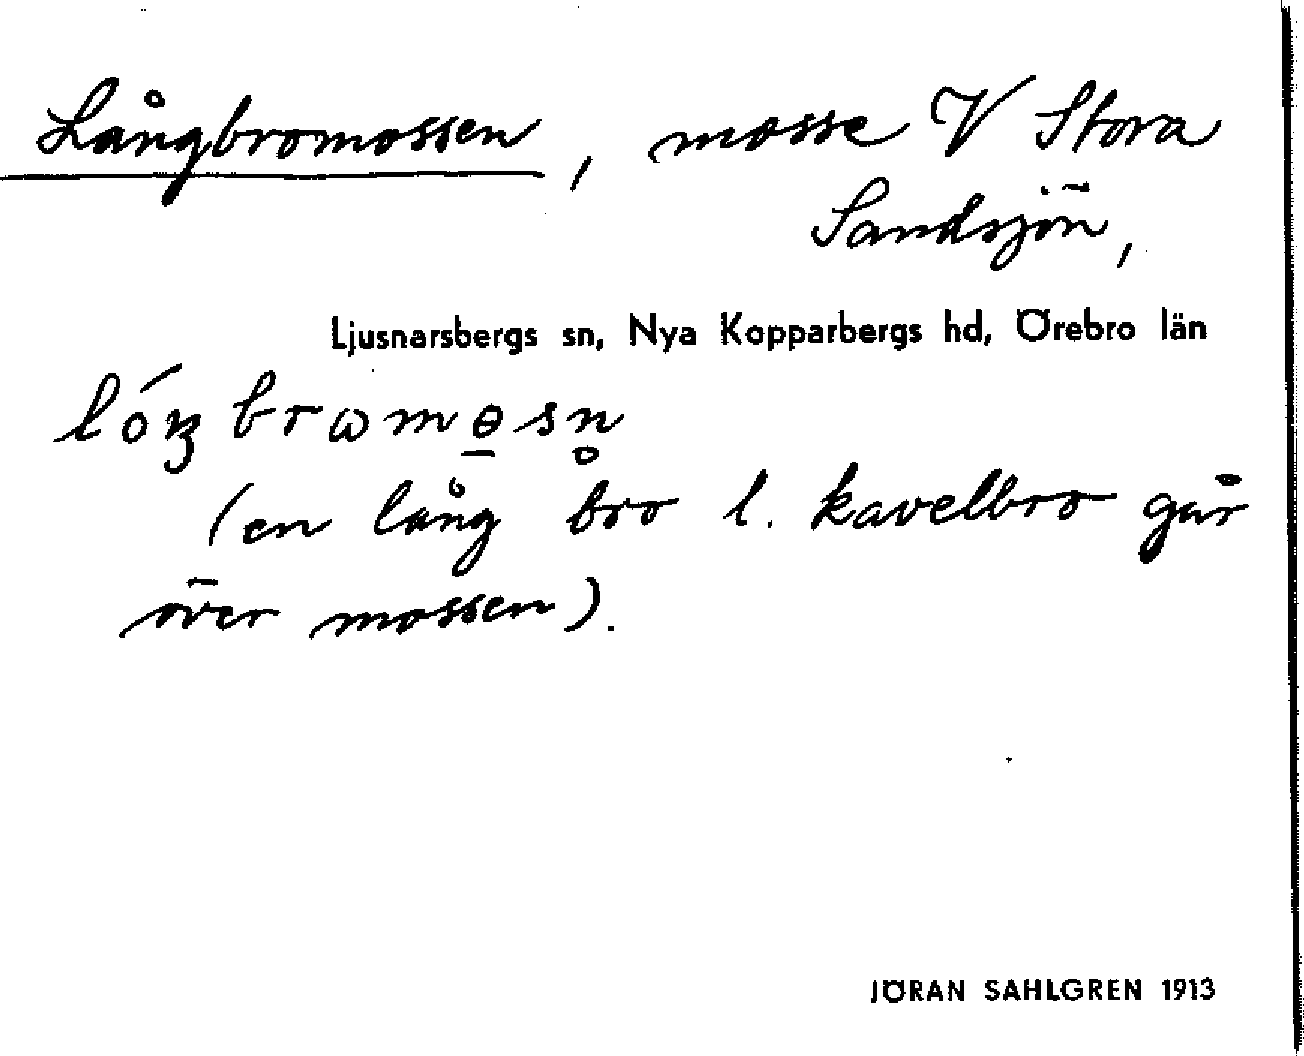 Långbromossen, mosse V Stora
Sandsjön,
Ljusnarsbergs sn, Nya Kopparbergs hd, Örebro län
lóŋbrωmɵ̠sn̥
(en lång bro l. kavelbro går
över mossen).
JÖRAN SAHLGREN 1913